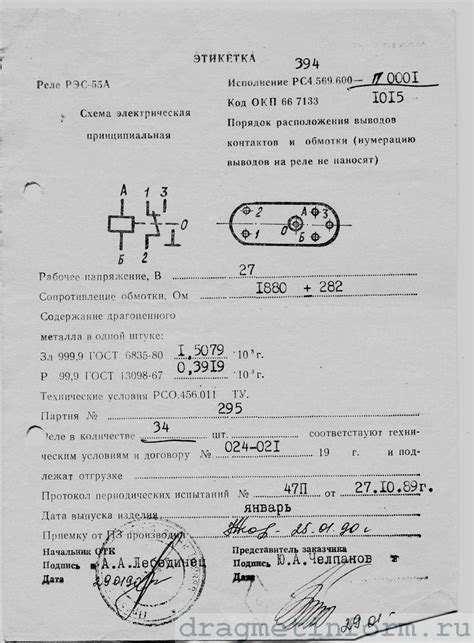 ЭТИКЕТКА 394
Реле РЭС-55А
Исполнение РС4.569.600—П 0001
Код ОКП 66 7133 1015
Схема электрическая
принципиальная
Порядок расположения выводов
контактов и обмотки (нумерацию
выводов на реле не наносят)
А 1 3
О
Б 2
2 А 3
О
1 Б
Рабочее напряжение, В 27
Сопротивление обмотки, Ом 1880 ± 282
Содержание драгоценного
металла в одной штуке:
Зл 999,9 ГОСТ 6835-80 1,5079 ·10³ г.
Р 99,9 ГОСТ 13098-67 0,3919 ·10³ г.
Технические условия РСО.456.011 ТУ.
Партия № 295
Реле в количестве 34 шт. соответствуют техни-
ческим условиям и договору № 024-021 19 г. и под-
лежат отгрузке
Протокол периодических испытаний № 47П от 27.10.89г.
Дата выпуска изделия январь
Приемку от ПЗ произвел 25.01.90г
Начальник ОТК
Подпись А.А.Лебединец
Дата 290190г
Представитель заказчика
Подпись Ю.А.Челпанов
Дата 29.01
dragmetinform.ru